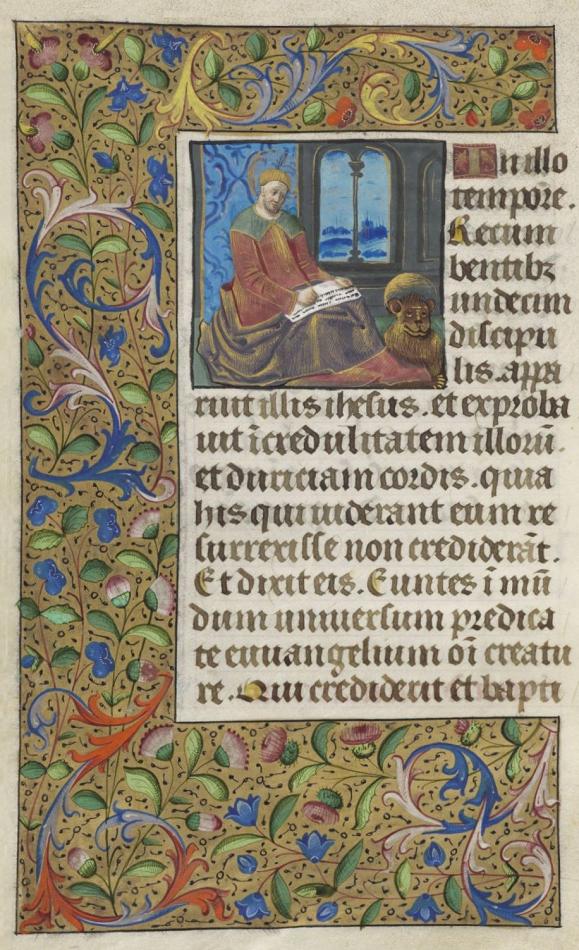 In illo
tempore.
Recum
bentibz
undecim
discipu
lis. appa
ruit illis ihesus. et exproba
uit īcredulitatem illorū.
et duriciam cordis. quia
his qui uiderant eum re
surrexisse non crediderāt.
Et dixit eis. Euntes ī mū
dum uniuersum predica
te euuangelium oī creatu
re. Qui crediderit et bapti